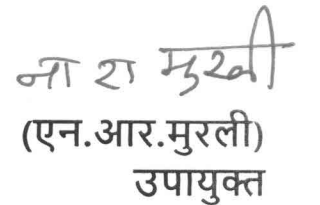 ना रा मुरली
(एन.आर.मुरली)
उपायुक्त